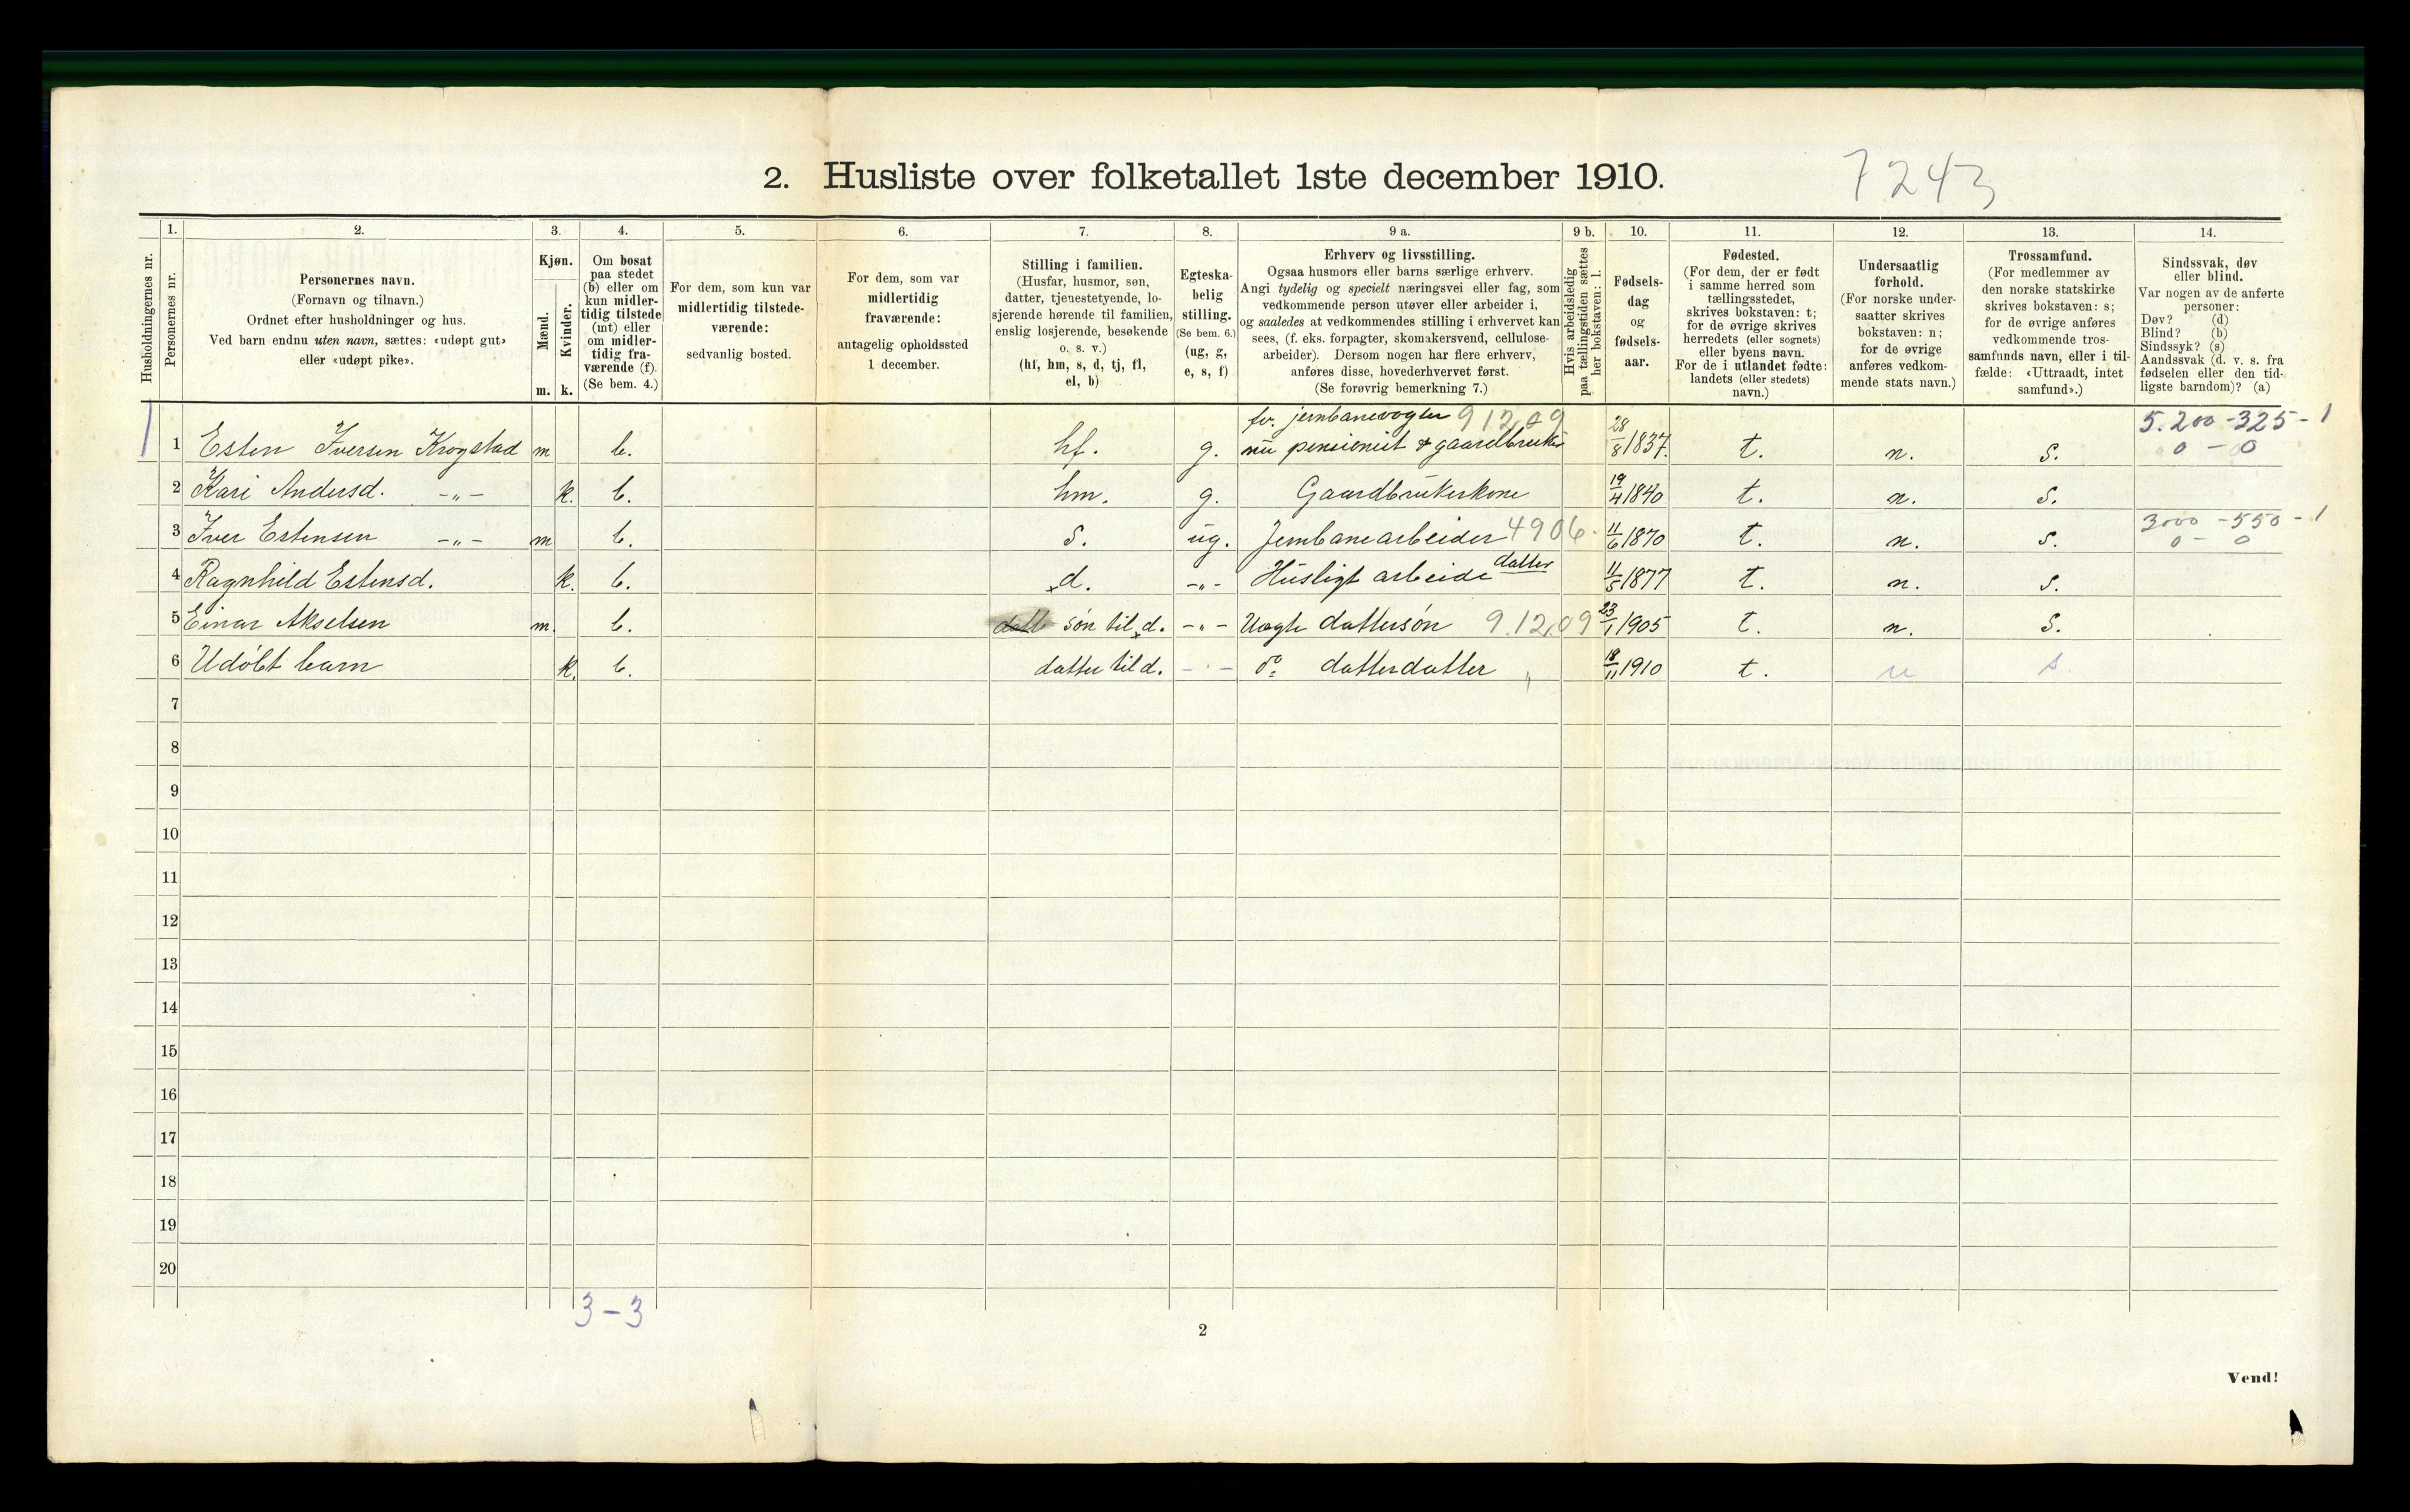 2. Husliste over folketallet 1ste december 1910.
7243
1. 2. 3. 4. 5. 6. 7. 8. 9 a. 9 b. 10. 11. 12. 13. 14.
Husholdningernes nr.
Personernes nr.
Personernes navn.
(Fornavn og tilnavn.)
Ordnet efter husholdninger og hus.
Ved barn endnu uten navn, sættes: «udøpt gut»
eller «udøpt pike».
Kjøn.
Mænd.
Kvinder.
m. k.
Om bosat
paa stedet
(b) eller om
kun midler-
tidig tilstede
(mt) eller
om midler-
tidig fra-
værende (f).
(Se bem. 4.)
For dem, som kun var
midlertidig tilstede-
værende:
sedvanlig bosted.
For dem, som var
midlertidig
fraværende:
antagelig opholdssted
1 december.
Stilling i familien.
(Husfar, husmor, søn,
datter, tjenestetyende, lo-
sjerende hørende til familien,
enslig losjerende, besøkende
o. s. v.)
(hf, hm, s, d, tj, fl,
el, b)
Egteska-
belig
stilling.
(Se bem. 6.)
(ug, g,
e, s, f)
Erhverv og livsstilling.
Ogsaa husmors eller barns særlige erhverv.
Angi tydelig og specielt næringsvei eller fag, som
vedkommende person utøver eller arbeider i,
og saaledes at vedkommendes stilling i erhvervet kan
sees, (f. eks. forpagter, skomakersvend, cellulose-
arbeider). Dersom nogen har flere erhverv,
anføres disse, hovederhvervet først.
(Se forøvrig bemerkning 7.)
Hvis arbeidsledig
paa tællingstiden sættes
her bokstaven: l.
Fødsels-
dag
og
fødsels-
aar.
Fødested.
(For dem, der er født
i samme herred som
tællingsstedet,
skrives bokstaven: t;
for de øvrige skrives
herredets (eller sognets)
eller byens navn.
For de i utlandet fødte:
landets (eller stedets)
navn.)
Undersaatlig
forhold.
(For norske under-
saatter skrives
bokstaven: n;
for de øvrige
anføres vedkom-
mende stats navn.)
Trossamfund.
(For medlemmer av
den norske statskirke
skrives bokstaven: s;
for de øvrige anføres
vedkommende tros-
samfunds navn, eller i til-
fælde: «Uttraadt, intet
samfund».)
Sindssvak, døv
eller blind.
Var nogen av de anførte
personer:
Døv? (d)
Blind? (b)
Sindssyk? (s)
Aandssvak (d. v. s. fra
fødselen eller den tid-
ligste barndom)? (a)
fv. jernbanevogter 91209 5.200-325-1
1 1 Esten Iversen Krogstad m b. hf. g. nu pensionist & gaardbruker 28/8 1837. t. n. s. 0 - 0
2 Kari Andersd. -"- k. b. hm. g. Gaardbrukerkone 19/4 1840 t. n. s.
3000 - 550 - 1
3 Iver Estensen -"- m b. s. ug. Jernbanearbeider 4906. 11/6 1870 t. n. s. 0 - 0
4 Ragnhild Estensd. k. b. x d. -"- Husligt arbeide datter 11/5 1877 t. n. s.
5 Einar Akselsen m. b. datt søn til x d. -"- Vogte dattersøn 9.12.09 23/1 1905 t. n. s.
6 Udøbt barn k. b. datter til d. -"- do datterdatter " 18/11 1910 t. n s
7
8
9
10
11
12
13
14
15
16
17
18
19
20
3-3
2
Vend!